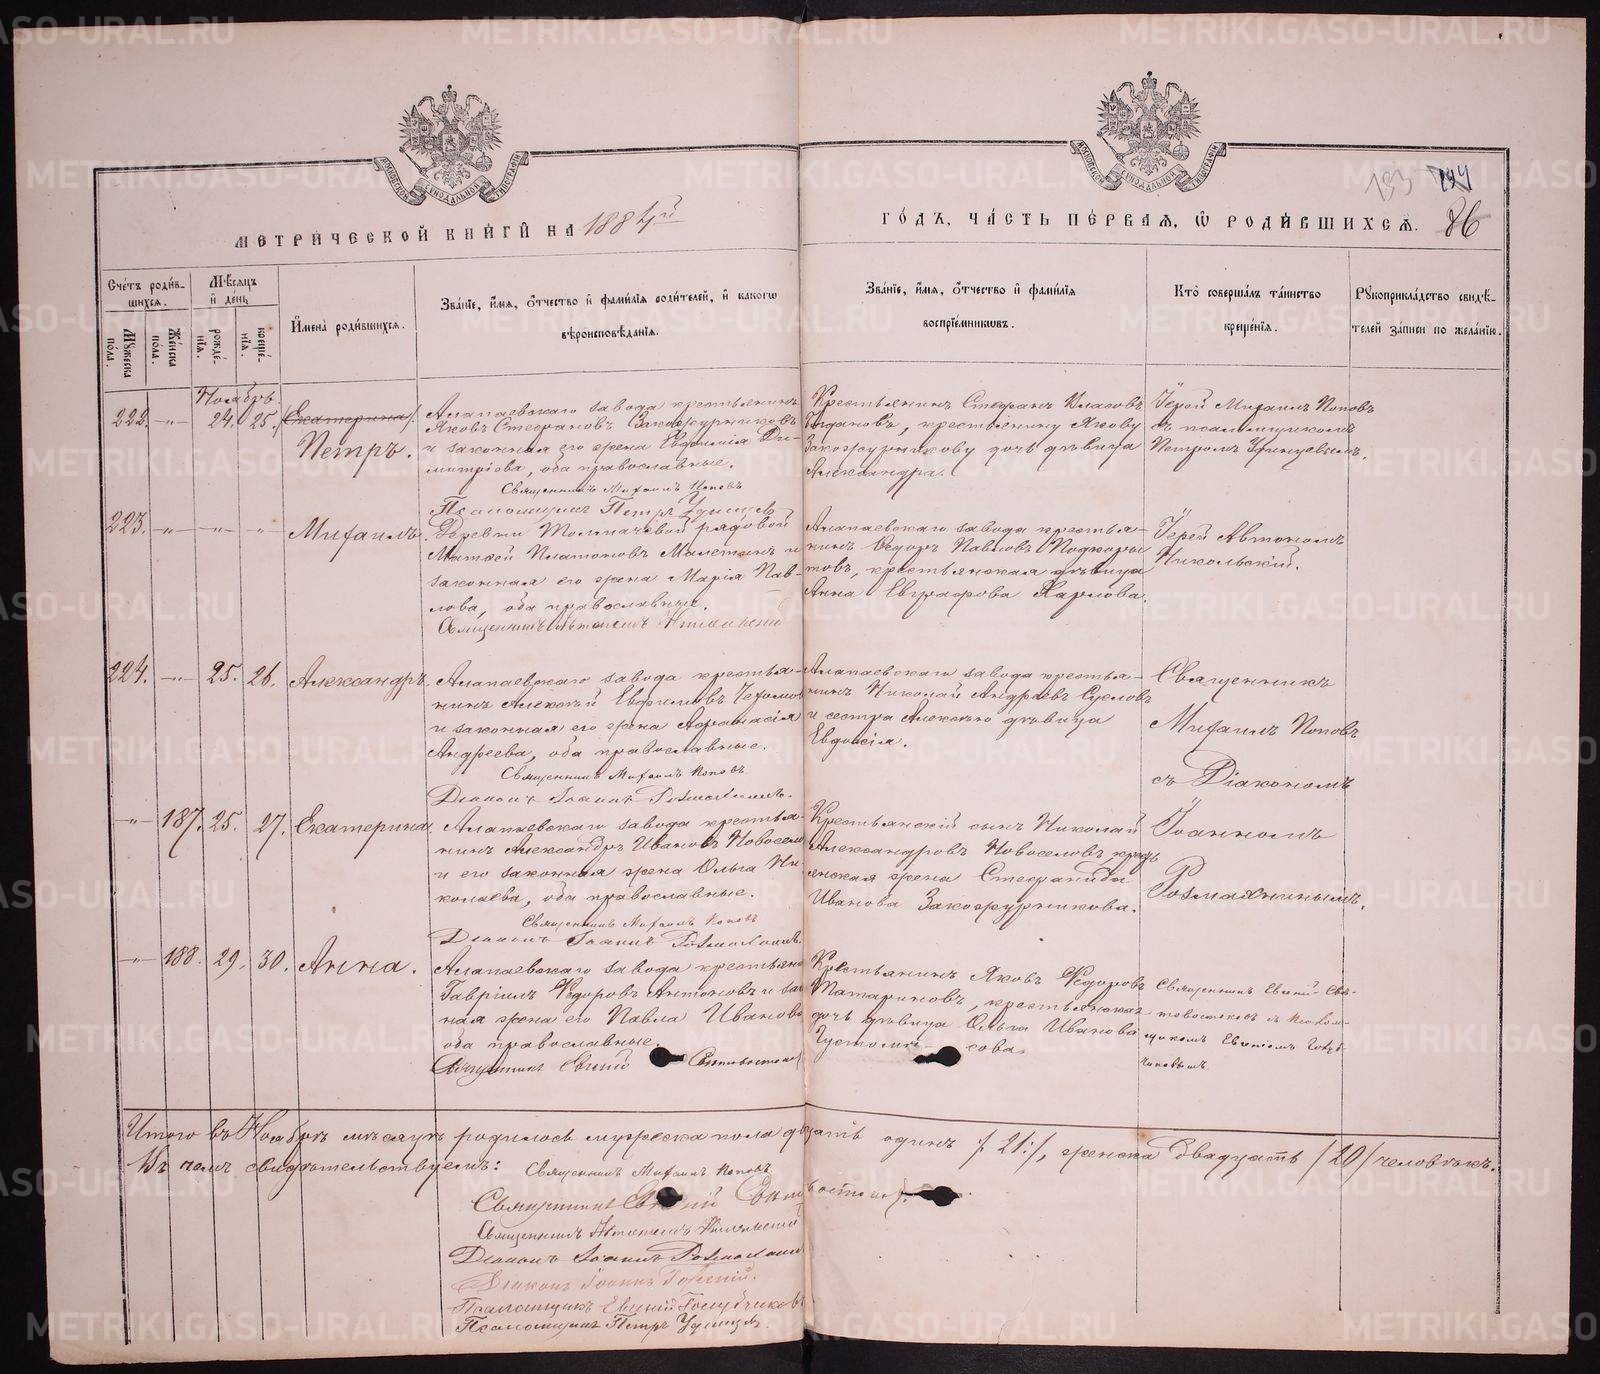 МЕТРИЧЕСКОЙ КНИГИ НА 1884й
ГОДЪ, ЧАСТЬ ПЕРВАЯ, Ѡ РОДИВШИХСЯ. 86
193 194
Счетъ родив-
шихся.
Мѣсяцъ
и день
Мужеска пола.
Женска пола.
рожде-
нія.
креще-
нія.
Имена родившихся.
Званіе, имя, отчество и фамилія родителей, и какогѡ
вѣроисповѣданія.
Званіе, имя, отчество и фамилія
воспріемникѡвъ.
Кто совершалъ таинство
крещенія.
Рукоприкладство свидѣ-
телей записи по желанію.
Ноябрь
222. -"- 24. 25. (Екатерина). Петръ.
Алапаевскаго завода крестьянинъ
Яковъ Стефановъ Закожурниковъ
и законная его жена Евдокія Ди-
митріева, оба православные.
Священникъ Михаилъ Поповъ
Псаломщикъ Петръ Удинцевъ
Крестьянинъ Стефанъ Власовъ
Богдановъ, крестьянину Якову
Закожурникову дочь дѣвица
Александра.
Іерей Михаилъ Поповъ
съ псаломщикомъ
Петромъ Удинцевымъ.
223. -"- -"- " Михаилъ.
Деревни Толмачевой рядовой
Матвей Платоновъ Малегинъ и
законная его жена Марія Пав-
лова, оба православные.
Священникъ Автономъ Никольскій
Алапаевскаго завода крестья-
нинъ Ѳедоръ Павловъ Подкоры-
товъ, крестьянская дѣвица
Анна Евграфова Карлова.
Іерей Автономъ
Никольскій.
224. -"- 25. 26. Александръ.
Алапаевскаго завода крестья-
нинъ Алексѣй Евфимовъ
и законная его жена Афанасія
Андреева, оба православные.
Священникъ Михаилъ Поповъ
Діаконъ Іоаннъ Размахнинъ.
Алапаевскаго завода крестья-
нинъ Николай Андреевъ Сусловъ
и сестра Алексѣю дѣвица
Евдокія.
Священникъ
Михаилъ Поповъ
съ Діакономъ
-"- 187. 25. 27. Екатерина
Алапаевскаго завода крестья-
нинъ Александръ Ивановъ Новоселовъ
и его законная жена Ольга Ни-
колаева, оба православные.
Священникъ Михаилъ Поповъ
Діаконъ Іоаннъ Размахнинъ.
Крестьянскій сынъ Николай
Александровъ Новоселовъ, кресть-
янская жена Стефанида
Иванова Закожурникова.
Іоанномъ
Размахнинымъ.
-"- 188. 29. 30. Анна.
Алапаевскаго завода крестьянинъ
Гавріилъ Ѳедоровъ Антоновъ и закон-
ная жена его Павла Иванова
оба православные.
Священникъ Евгеній
Крестьянинъ Яковъ Ѳедоровъ
Татариновъ, крестьянская
дочь дѣвица Ольга Иванова
Густомѣсова.
Священникъ Евгеній
съ Псалом-
щикомъ Евгеніемъ Голуб-
чиковымъ.
Итого въ Ноябрѣ мѣсяцѣ родилось мужеска пола двадцать одинъ /:21:/, женска двадцать /20/ человѣкъ.
Въ чемъ свидѣтельствуемъ: Священникъ Михаилъ Поповъ
Священникъ Евгеній
Священникъ Автономъ Никольскій
Діаконъ Іоаннъ Размахнинъ
Діаконъ Іоаннъ
Псаломщикъ Евгеній Голубчиковъ
Псаломщикъ Петръ Удинцевъ
METRIKI.GASO-URAL.RU